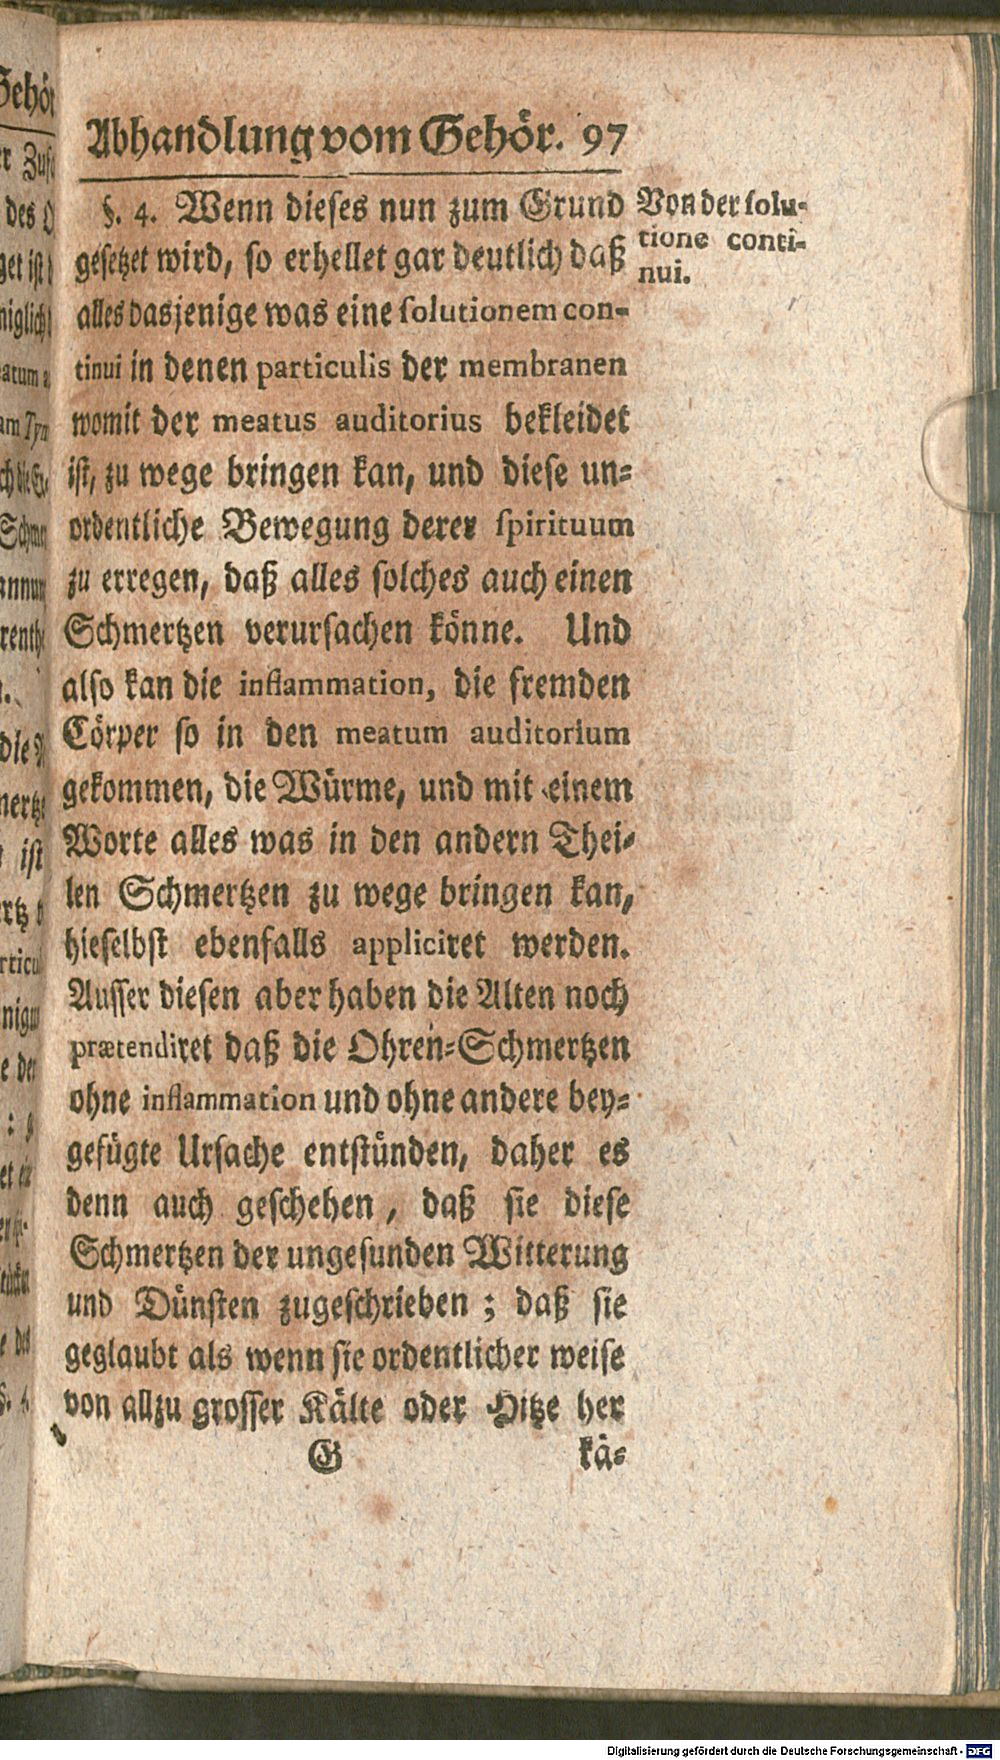 Abhandlung vom Gehör. 97
§. 4. Wenn dieses nun zum Grund
gesetzet wird, so erhellet gar deutlich daß
alles dasjenige was eine solutionem con-
tinui in denen particulis der membranen
womit der meatus auditorius bekleidet
ist, zu wege bringen kan, und diese un-
ordentliche Bewegung derer spirituum
zu erregen, daß alles solches auch einen
Schmertzen verursachen könne. Und
also kan die inflammation, die fremden
Cörper so in den meatum auditorium
gekommen, die Würme, und mit einem
Worte alles was in den andern Thei-
len Schmertzen zu wege bringen kan,
hieselbst ebenfalls appliciret werden.
Ausser diesen aber haben die Alten noch
prætendiret daß die Ohren-Schmertzen
ohne inflammation und ohne andere bey-
gefügte Ursache entstünden, daher es
denn auch geschehen, daß sie diese
Schmertzen der ungesunden Witterung
und Dünsten zugeschrieben; daß sie
geglaubt als wenn sie ordentlicher weise
von allzu grosser Kälte oder Hitze her
G kä-
Von der solu-
tione conti-
nui.
Digitalisierung gefördert durch die Deutsche Forschungsgemeinschaft - DFG